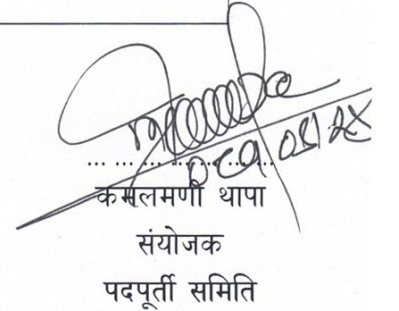 कमलमणी थापा
संयोजक
पदपूर्ती समिति